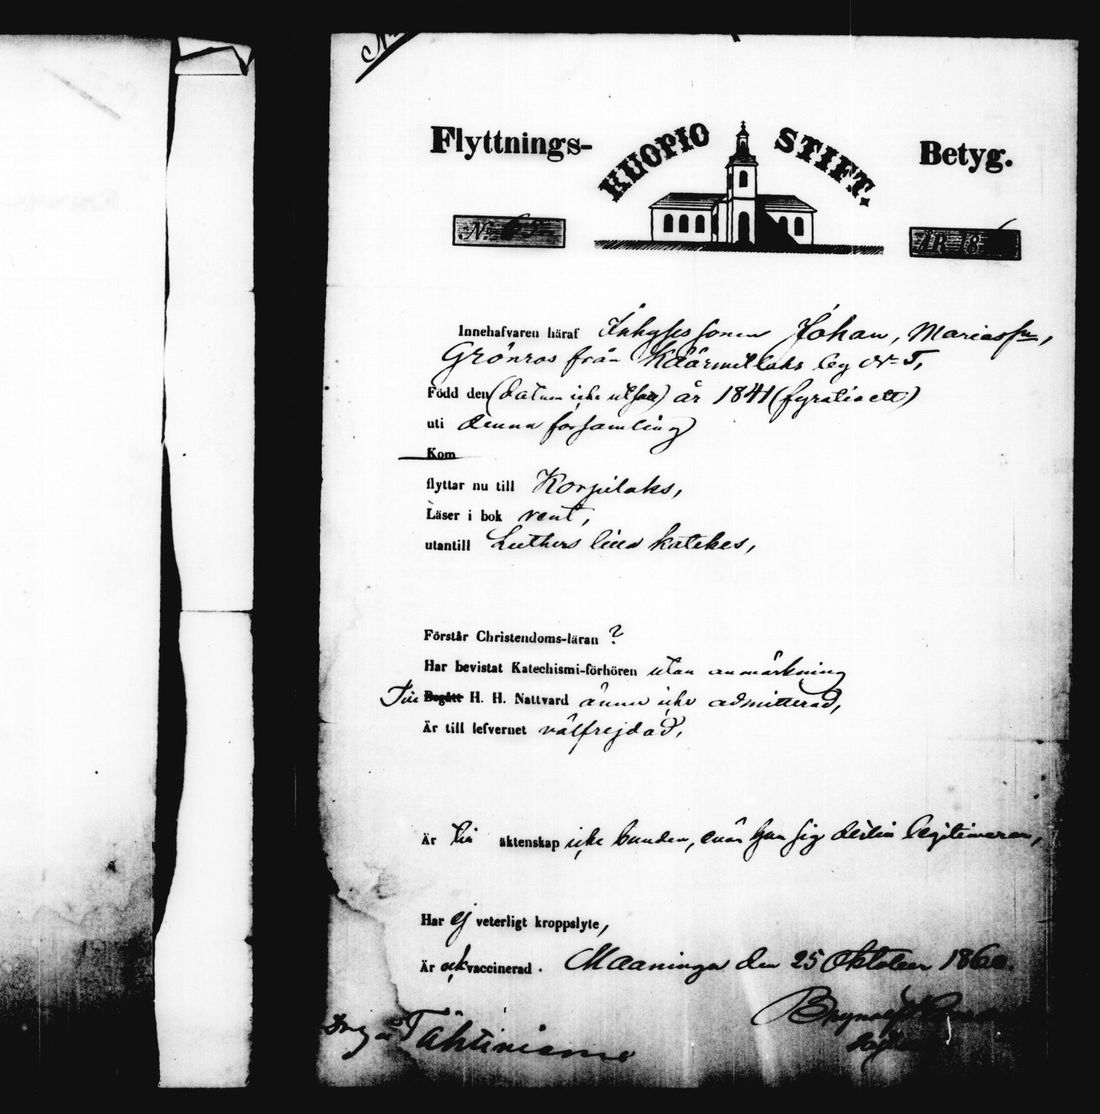 Flyttnings- KUOPIO STIFT. Betyg.
N:o
ÅR 18
Innehafvaren häraf Inhyses sonen Johan, Mariasson,
Grönroos från Käärmelaks by N:o 5,
Född den (datum icke utsatt) år 1841 (fyratioett)
uti denna församling
Kom
flyttar nu till Korpilaks,
Läser i bok rent,
utantill Luthers lilla katekes,
Förstår Christendoms-läran ?
Har bevistat Katechismi-förhören utan anmärkning
Till Begått H. H. Nattvard ännu icke admitterad,
Är till lefvernet välfrejdad,
Är till äktenskap icke bunden, men kan sig dertill legitimera,
Har ej veterligt kroppslyte,
Är ock vaccinerad. Maaninga den 25 Oktober 1860.
Tähtiniemi